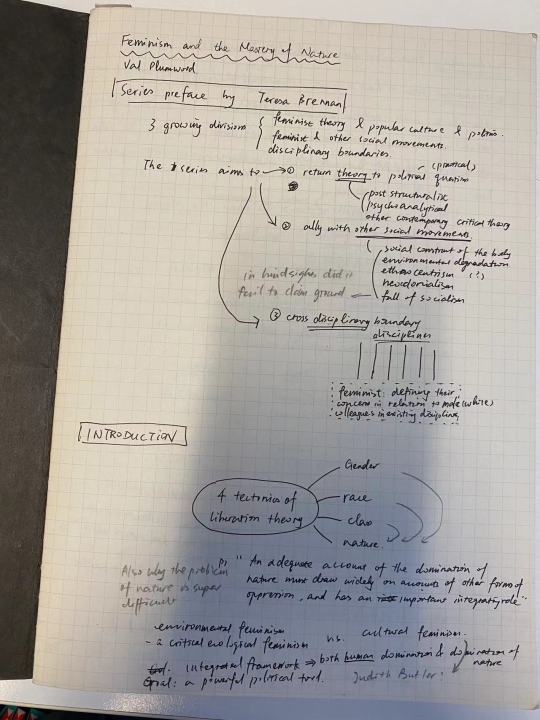 Feminism and the Mastery of Nature
Val Plumwood
Series preface by Teresa Brennan
3 growing divisions
feminist theory & popular culture & politics.
feminist & other social movements.
disciplinary boundaries.
The series aims to → ① return theory to political question
(practical)
post structuralist
psychoanalytical
other contemporary critical theory
② ally with other social movements
social construct of the body
environmental degradation
ethnocentrism (?)
neocolonialism
fall of socialism
in hindsight did it
fail to claim ground
③ cross disciplinary boundary
disciplines
feminist: defining their
concern in relation to male (white)
colleagues in existing discipline
INTRODUCTION
4 tectonics of
liberation theory
Gender
race
class
nature.
Also why the problem
of nature is super
difficult
P1 "An adequate account of the domination of
nature must draw widely on accounts of other forms of
oppression, and has an important integrating role"
- environmental feminism
- a critical ecological feminism vs. cultural feminism.
integrated framework ⇒ both human domination & domination of
nature
Goal: a powerful political tool. Judith Butler?